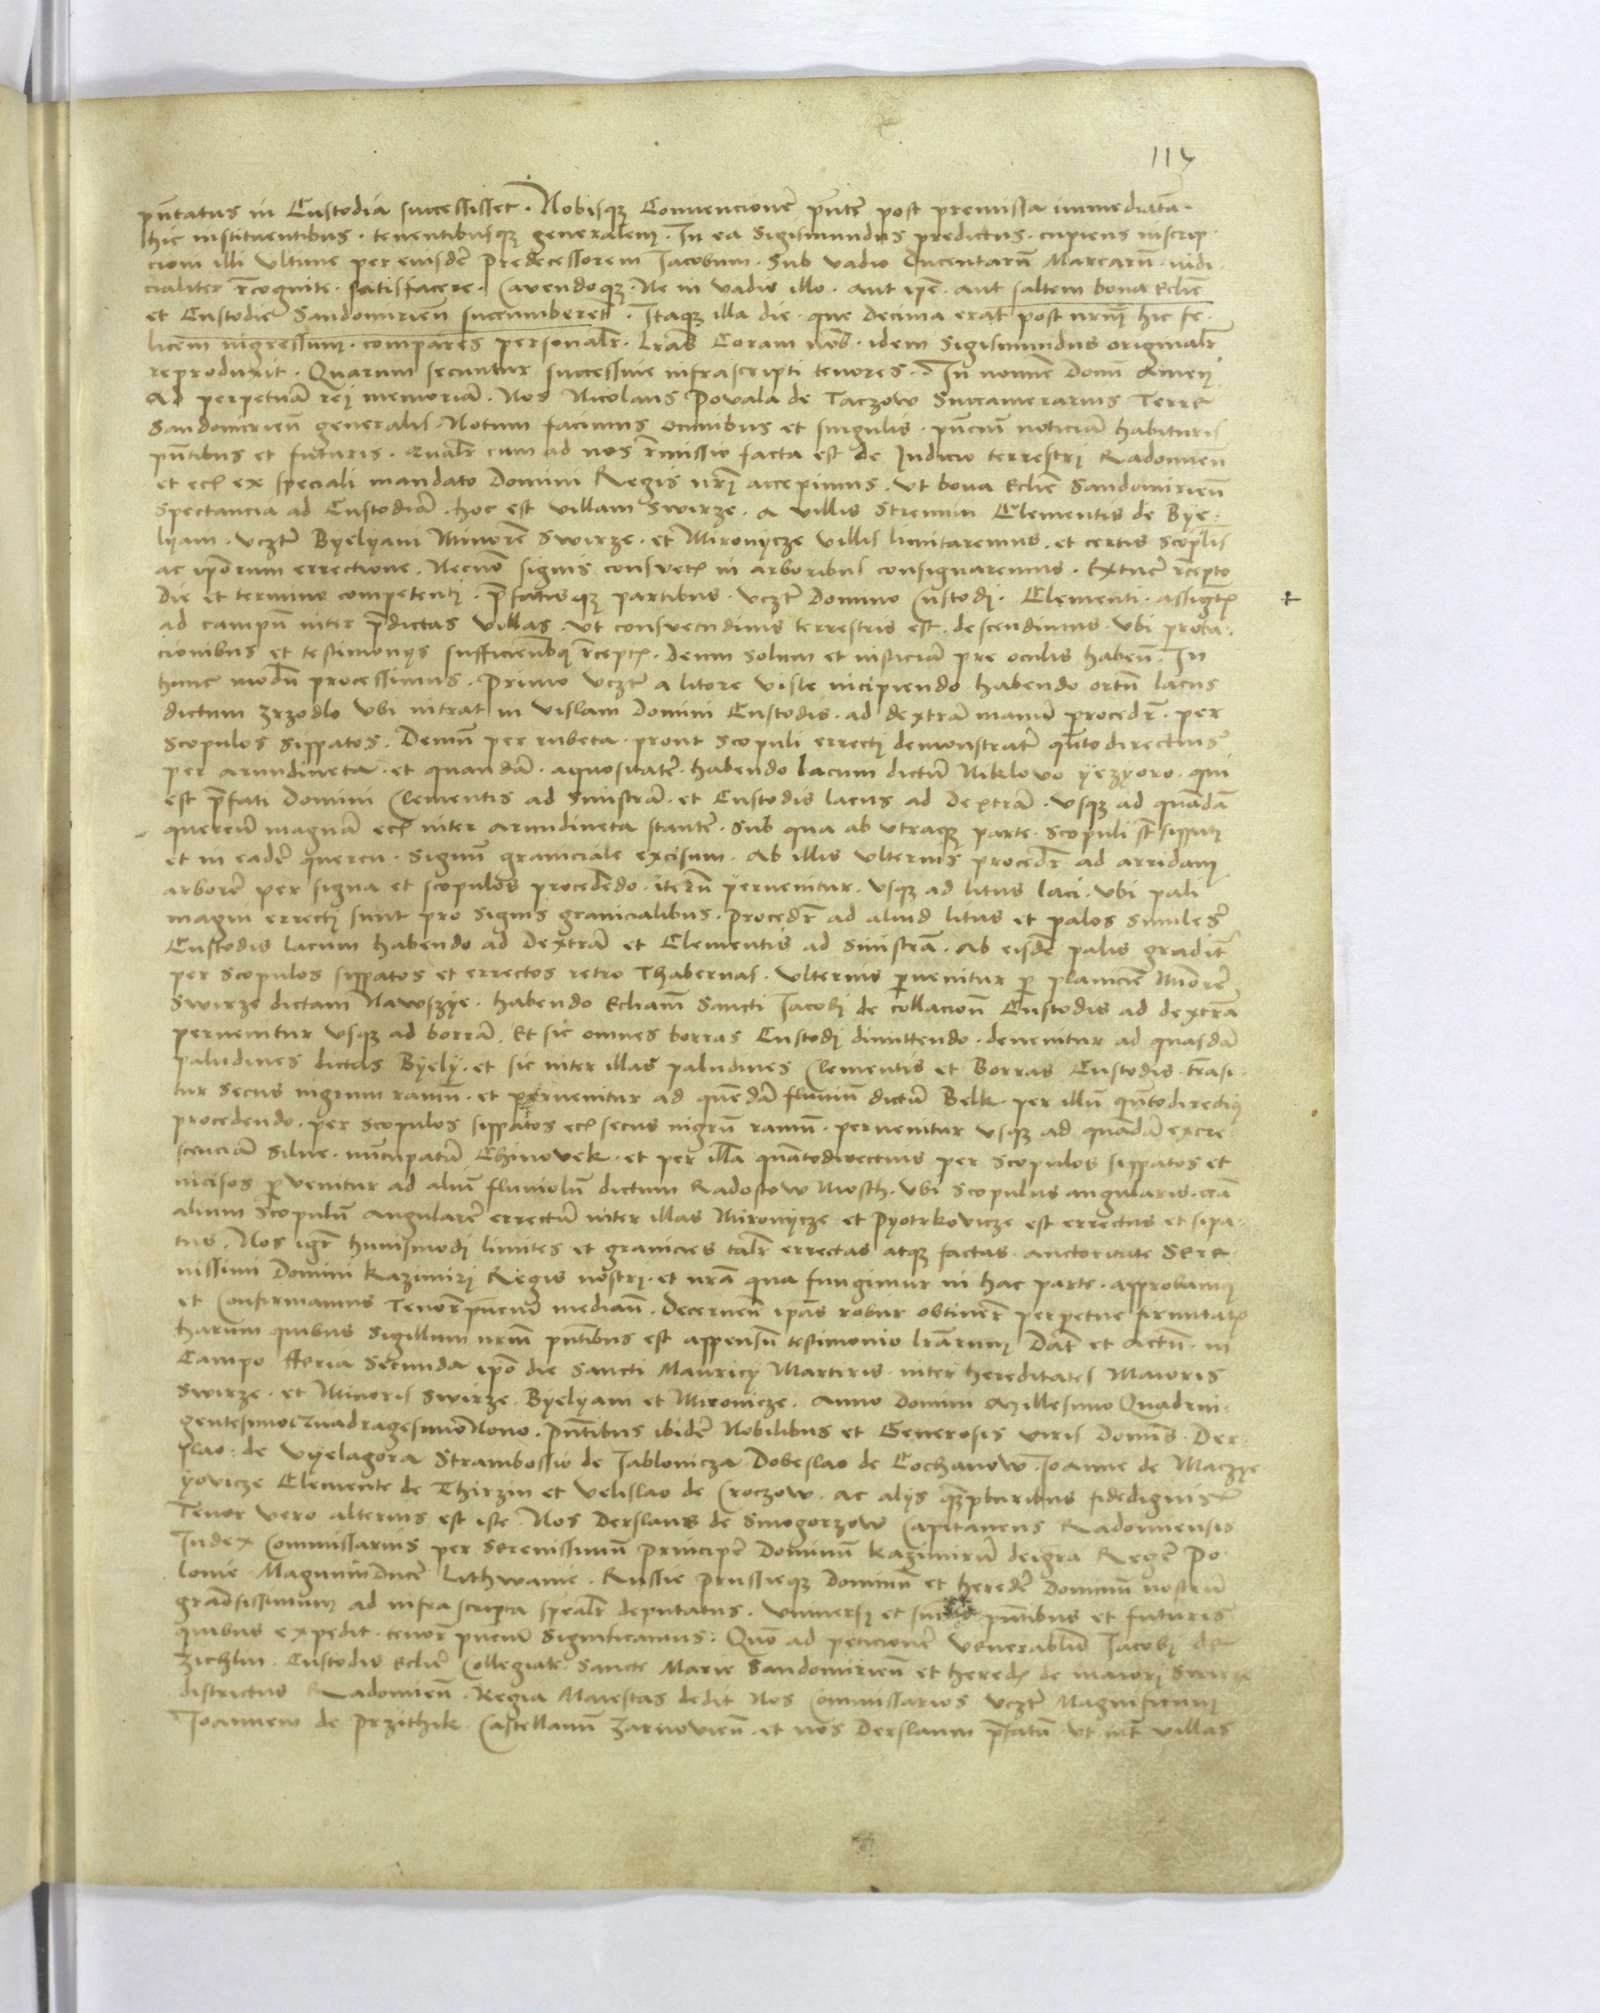 117
pn̄tatus in Custodia successisset. Nobisqʒ Convencionē pn̄tē post premissa immediatā
hic instituentibus. tenentibusqʒ generalem. In ea Sigismundus predictus. cupiens inscrip
cioni illi ultime per eiusdē Predecessorem Iacobum. Sub vadio Ducentarū Marcarū. iudi
cialiter rcognite. satisfacere. Cavendoqʒ. Ne in vadio illo. aut ipē. aut saltem bona Eclīe
et Custodie Sandomirien̄ succumberent. Itaqʒ illa die. que Decima erat post nr̄m hic fe
licem ingressum. compares personalr̄. Lrās Coram nob̄. idem Sigismundus originalr̄
reproduxit. Quarum secuntur successive infrascripti tenores. In nomīe Domī Amen
Ad perpetuā rei memoriā. Nos Nicolaus Povala de Taczow Succamerarius Terre
Sandomirien̄ generalis. Notum facimus omnibus et singulis. pn̄ciū noticiā habituris
pn̄tibus et futuris. Qualr̄ cum ad nos rmissio facta est de Iudicio terrestri Radomien̄
et ec̄ ex speciali mandato Domini Regis nr̄i accepimus. Ut bona Eclīe Sandomirien̄
Spectancia ad Custodiā. hoc est villam Swirze. a villis Strenui Clementis de Bye
lyam. vcztʳ Byelyam Minorē Swirze. et Mironycze villis limitaremus. et certis Scopl̄is
ac ip̄orum errectione. Necnō signis consvetʒ in arboribus consignaremus. Extūc rcepto
Die et termino competenti. pr̄fatisqʒ partibus. vcztʳ Domino Custodi. Clementi. assigtʒ
ad campū inter pr̄dictas villas. Ut consvetudinis terrestris est. descendimus. Ubi probā
cionibus et testimonys sufficientibqʒ rceptʒ. Deum solum et iusticiā pre oculis haben̄. In
hunc modū processimus. Primo vcztʳ a litore visle incipiendo. habendo ortū lacus
dictum Zrzodlo ubi intrat in vislam Domini Custodis. ad dextrā manū procedr̄. per
Scopulos Sippatos. Demū per rubeta. prout Scopuli errecti demonstratʳ qn̄todirectius
per arundineta. et quandā. aquositatē. habendo lacum dictū Niklovo yezyoro. qui
est pr̄fati Domini Clementis ad Sinistrā. et Custodis lacus ad Dextrā. Usqʒ ad quādā
quercū magnā ec̄ inter arundineta stantē. Sub qua ab utraqʒ parte. Scopuli st̄ sippati
et in eadē quercu. Signū graniciale excisum. Ab illis ulterius procedr̄ ad arridam
arborē per signa et scopulos procedēdo. iterū pervenitur. Usqʒ ad litus laci. ubi pali
magni errecti sunt pro Signis granicialibus. Procedr̄ ad aliud litus et palos similes
Custodis lacum habendo ad Dextrā et Clementis ad Sinistrā. Ab eisdē palis graditʳ
per Scopulos sippatos et errectos retro Thabernas. Ulterius pvenitur p planiciē Minorē
Swirze dictam Nawszye. habendo Ecliam Sancti Iacobi de collacion̄ Custodis ad dextrā
pervenitur usqʒ ad borrā. Et sic omnes borras Custodi dimittendo. devenitur ad quasdā
paludines dictas Byely. et sic inter illas paludines Clementis et Borras Custodis. trāsi
tur secus nigrum ramū. et pervenitur ad quēdā fluviū dictū Belk. per illū qn̄todirectiʒ
procedendo. per Scopulos sippatos ec̄ secus nigrū ramū. pervenitur usqʒ ad quādā excre
scenciā Silve. nūcupatā Chinovek. et per illā quātodirectius per Scopulos sippatos et
incisos pvenitur ad aliū fluviolū dictum Radostow Mosth. Ubi Scopulus angularis. cʳcā
alium Scopulū Angularē errectū inter illas Mironycze et Pyotrkovicze est errectus et sipa
tus. Nos igr̄ huiusmodi limites et granicies talr̄ errectas atqʒ factas. auctoritate Sere
nissimi Domini Kazimiri Regis nostri. et nr̄a qua fungimur in hac parte. approbamus
et Confirmamus Tenore pn̄cium median̄. Decernen̄ ipās robur obtinere perpetue firmitatʒ
Harum quibus Sigillum nr̄m pn̄tibus est appensū testimonio lrārum. Dat̄ et Actū. in
Campo Feria Secunda ipō die Sancti Mauricy Martiris. inter hereditates Maioris
Swirze. et Minoris Swirze. Byelyam et Mironicze. Anno Domini Millesimo Quadrin
gentesimo Quadragesimo Nono. Pn̄tibus ibidē Nobilibus et Generosis viris Domīs. Der
slao. de Vyelagora Strambossio de Iablonicza Dobeslao de Cochanow. Ioanne de Maczye
yovicze Clemente de Thirzin et Velislao de Croczow. ac alys qʒpluribus fidedignis.
Tenor vero alterius est iste. Nos Derslaus de Smogorzow Capitaneus Radomiensis
Iudex Commissarius per Serenissimū Principē Dominū Kazimirū deigrā Regē Po
lonie Magnum Ducē Lithwanie. Russie Prussieqʒ Dominū et heredē Dominū nostrū
grāsissimum ad infrascripta spealr̄ deputatus. Universis et sin̄lis pn̄tibus et futuris
quibus expedit. tenore pn̄ciū Significamus. Quō ad peticionē Venerabilis Iacobi de
Zichlin. Custodis Eclīe Collegiate Sancte Marie Sandomirien̄ et heredʒ de maiori Swirze
districtus Radomien̄. Regia Maiestas dedit Nos Commissarios vcztʳ Magnificum
Ioannem de Przithik Castellanū Zarnovien̄. et nos Derslaum pr̄fatū Ut int̄ villas